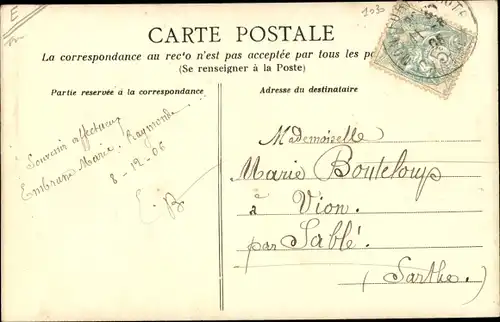 E
1030
CARTE POSTALE
La correspondance au recto n'est pas acceptée par tous les
(Se renseigner à la Poste)
Partie reservée à la correspondance
Adresse du destinataire
Souvenir affectueux
Marie Raymonde
8-12-06
E. B
Mademoiselle
Marie Bouteloup
à Vion.
par Sablé.
(Sarthe.)